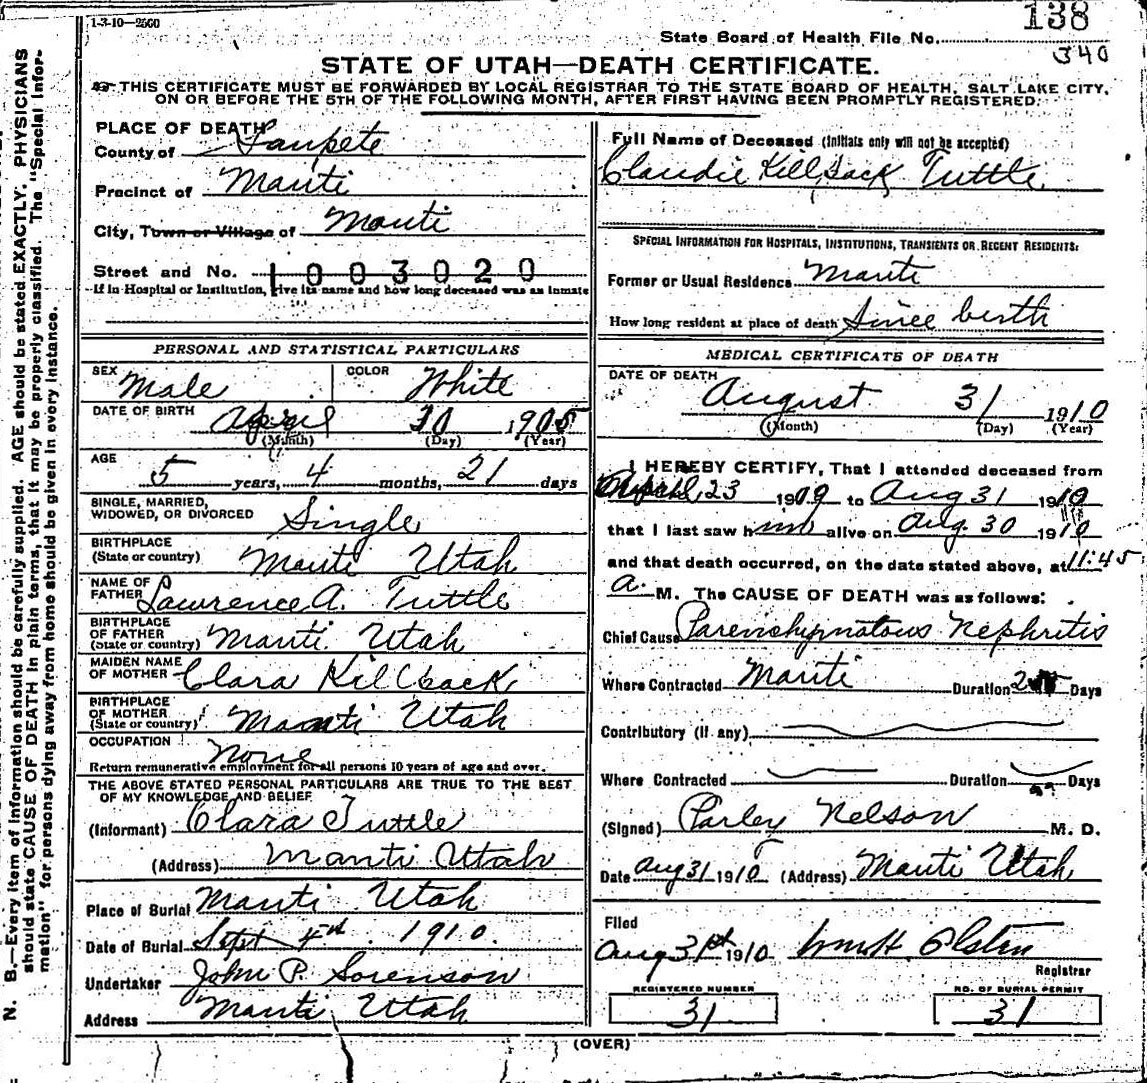 1-3-10-2500
138
State Board of Health File No.
340
STATE OF UTAH—DEATH CERTIFICATE.
THIS CERTIFICATE MUST BE FORWARDED BY LOCAL REGISTRAR TO THE STATE BOARD OF HEALTH, SALT LAKE CITY,
ON OR BEFORE THE 5TH OF THE FOLLOWING MONTH, AFTER FIRST HAVING BEEN PROMPTLY REGISTERED.
PLACE OF DEATH
County of Sanpete
Precinct of Manti
City, Town or Village of Manti
Street and No. 1003020
If in Hospital or Institution, give its name and how long deceased was an inmate
PERSONAL AND STATISTICAL PARTICULARS
SEX Male COLOR White
DATE OF BIRTH April 10 1905
(Month) (Day) (Year)
AGE 5 years, 4 months, 21 days
SINGLE, MARRIED,
WIDOWED, OR DIVORCED Single
BIRTHPLACE
(State or country) Manti Utah
NAME OF
FATHER Lawrence A. Tuttle
BIRTHPLACE
OF FATHER
(State or country) Manti Utah
MAIDEN NAME
OF MOTHER Clara Killpack
BIRTHPLACE
OF MOTHER
(State or country) Manti Utah
OCCUPATION None
Return remunerative employment for all persons 10 years of age and over.
THE ABOVE STATED PERSONAL PARTICULARS ARE TRUE TO THE BEST
OF MY KNOWLEDGE AND BELIEF
(Informant) Clara Tuttle
(Address) Manti Utah
Place of Burial Manti Utah
Date of Burial Sept 4th 1910.
Undertaker John P. Sorenson
Address Manti Utah
Full Name of Deceased (Initials only will not be accepted)
Claudie Killpack Tuttle
SPECIAL INFORMATION FOR HOSPITALS, INSTITUTIONS, TRANSIENTS OR RECENT RESIDENTS:
Former or Usual Residence Manti
How long resident at place of death Since birth
MEDICAL CERTIFICATE OF DEATH
DATE OF DEATH
August 31 1910
(Month) (Day) (Year)
I HEREBY CERTIFY, That I attended deceased from
April 23 1909 to Aug 31 1910
that I last saw him alive on Aug. 30 1910
and that death occurred, on the date stated above, at 11:45
a. M. The CAUSE OF DEATH was as follows:
Chief Cause Parenchymatous Nephritis
Where Contracted Manti Duration Days
Contributory (if any)
Where Contracted Duration Days
(Signed) Parley Nelson M. D.
Date Aug 31 1910 (Address) Manti Utah
Filed
Aug 31st 1910 Wm H. Olsten
Registrar
REGISTERED NUMBER
31
NO. OF BURIAL PERMIT
31
(OVER)
N. B.—Every item of information should be carefully supplied. AGE should be stated EXACTLY. PHYSICIANS
should state CAUSE OF DEATH in plain terms, that it may be properly classified. The "Special Infor-
mation" for persons dying away from home should be given in every instance.